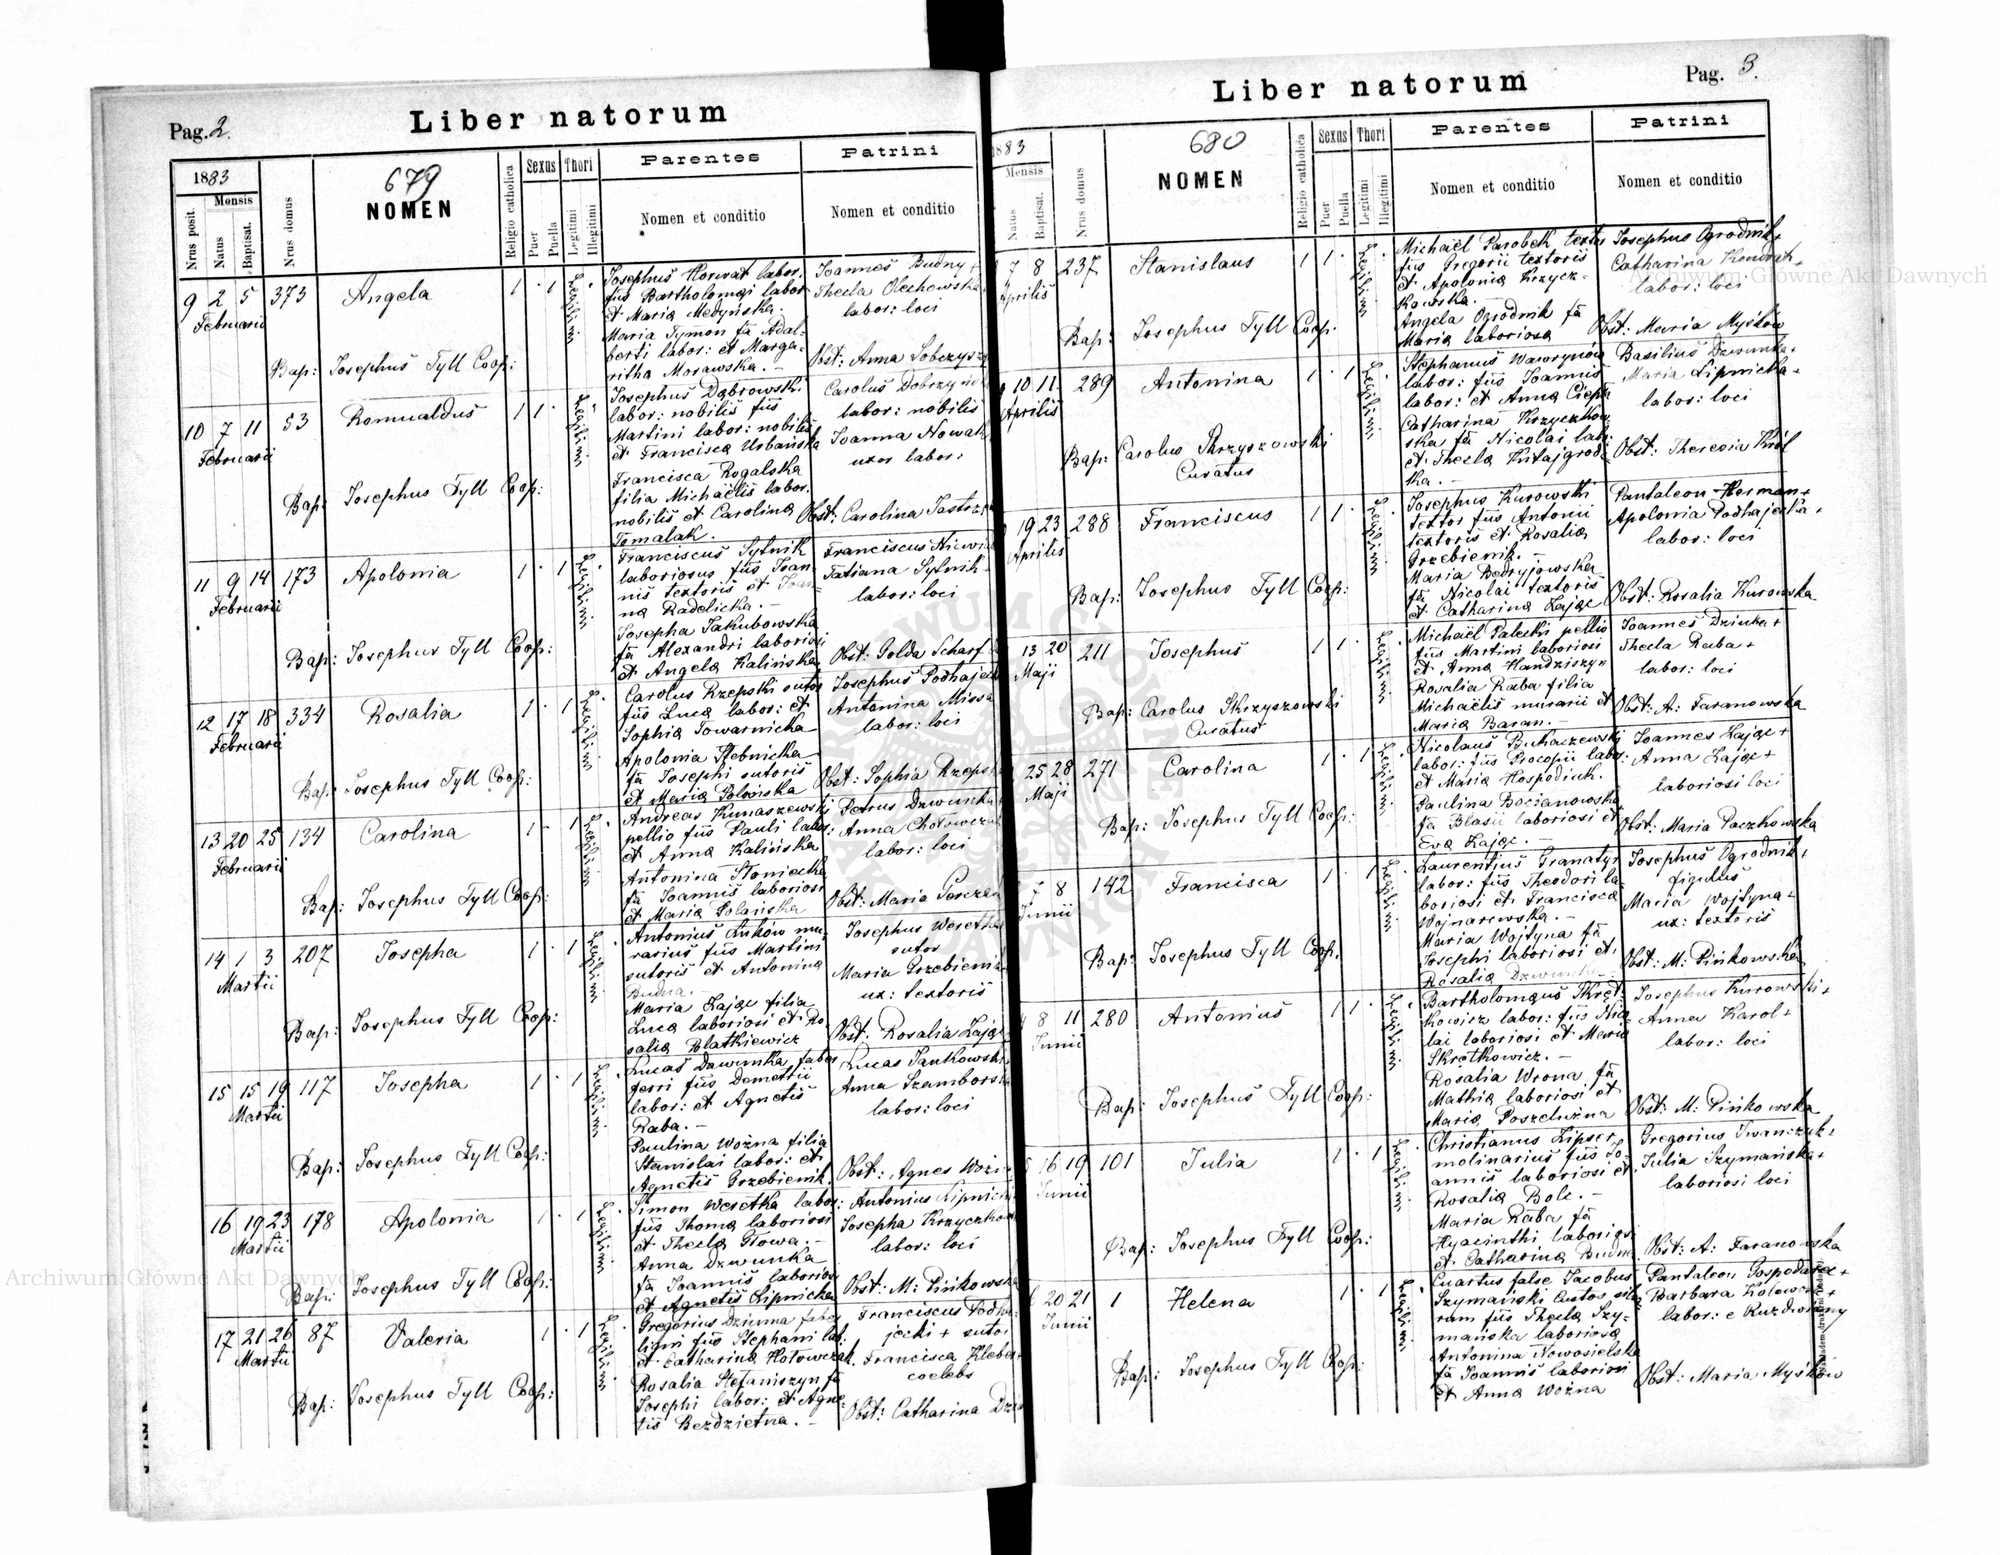 Pag. 2.
Liber natorum
1883
Mensis
Nrus posit.
Natus
Baptisat.
Nrus domus
679
NOMEN
Religio catholica
Sexus
Puer
Puella
Thori
Legitimi
Illegitimi
Parentes
Nomen et conditio
Patrini
Nomen et conditio
9 2 5 373 Angela 1 · 1 Legitimi
Februarii
Josephus Horwat labor.
fius Bartholomæi labor
et Maria Medyńska.
Maria Tymon fa Adal-
berti labor: et Marga-
ritha Morawska. –
Joannes Budny +
Thecla Olechowska
labor: loci
Obst: Anna Sobczysz
Bap: Josephus Tyll Coop:
10 7 11 53 Romualdus 1 1 · Legitimi
Februarii
Josephus Dąbrowski
labor: nobilis fius
Martini labor: nobilis
et Francisca Urbańska
Francisca Rogalska
filia Michaëlis labor.
nobilis et Carolina
Tomalak.
Carolus Dobrzyń
labor: nobilis
Joanna Nowak
uxor labor:
Obst: Carolina Jastrz
Bap: Josephus Tyll Coop:
11 9 14 173 Apolonia 1 · 1 Legitimi
Februarii
Franciscus Sytnik
laboriosus fius Joan-
nis textoris et Joan-
na Radelicka. –
Josepha Jakubowska
fa Alexandri laboriosi
et Angela Kalińska
Franciscus Niewi
Tatiana Sytnik
labor: loci
Obst: Golda Scharf
Bap: Josephus Tyll Coop:
12 17 18 334 Rosalia 1 · 1 Legitimi
Februarii
Carolus Rzepski sutor
fius Luca labor: et
Sophia Towarnicka
Apolonia Stebnicka
fa Josephi sutoris
et Maria Polańska
Josephus Podhaje
Antonina Missa
labor: loci
Obst: Sophia Rzepska
Bap: Josephus Tyll Coop:
13 20 25 134 Carolina 1 · 1 Legitimi
Februarii
Andreas Kunaszewski
pellio fius Pauli labor:
et Anna Kalińska
Antonina Słoniecka
fa Joannis laboriosi
et Maria Polańska
Petrus Dzwinka
Anna
labor: loci
Obst: Maria
Bap: Josephus Tyll Coop:
14 1 3 207 Josepha 1 · 1 Legitimi
Martii
Antonius Łukow mu-
rarius fius Martini
sutoris et Antonina
Budna. –
Maria Zając filia
Luca laboriosi et Ro-
salia Blatkiewicz
Josephus Weretka
sutor
Maria Grzebienik
ux: textoris
Obst: Rosalia Zając
Bap: Josephus Tyll Coop:
15 15 19 117 Josepha 1 · 1 Legitimi
Martii
Lucas Dawunka faber
ferri fius Demetrii
labor: et Agnetis
Raba. –
Paulina Woźna filia
Stanislai labor: et
Agnetis Grzebienik.
Lucas Jankowski
Anna Szamborska
labor: loci
Obst: Agnes Woźn
Bap: Josephus Tyll Coop:
16 19 23 178 Apolonia 1 · 1 Legitimi
Martii
Simon Weretka labor:
fius Thoma laboriosi
et Thecla Głowa. –
Anna Dzwunka
fa Joannis laboriosi
et Agnetis Lipnicka
Antonius Lipnicki
Josepha Krzyczkow
labor: loci
Obst: M: Pińkowska
Bap: Josephus Tyll Coop:
17 21 26 87 Valeria 1 · 1 Legitimi
Martii
Gregorius Dziuma faber
ligni fius Stephani lab:
et Catharina Hołowczak.
Rosalia Stefaniszyn fa
Josephi labor: et Agne-
tis Bezdzietna. –
Franciscus Podha-
jecki + sutor
Francisca Kleber
coelebs
Obst: Catharina Dzi
Bap: Josephus Tyll Coop:
Liber natorum
Pag. 3.
1883
Mensis
Natus
Baptisat.
Nrus domus
680
NOMEN
Religio catholica
Sexus
Puer
Puella
Thori
Legitimi
Illegitimi
Parentes
Nomen et conditio
Patrini
Nomen et conditio
7 8 237 Stanislaus 1 1 · Legitimi
Aprilis
Michaël Parobek textor
fius Gregorii textoris
et Apolonia Krzycz-
kowska. –
Angela Ogrodnik fa
Maria laboriosa
Josephus Ogrodnik +
Catharina Kondrat +
labor: loci
Obst: Maria Myśków
Bap: Josephus Tyll Coop:
10 11 289 Antonina 1 · 1 Legitimi
Aprilis
Stephanus Wawrynów
labor: fius Joannis
labor: et Anna Ciepła
Catharina Krzyczkow-
ska fa Nicolai lab:
et Thecla Kitajgrod-
ka. –
Basilius Dzwunka +
Maria Lipnicka +
labor: loci
Obst: Theresia Król
Bap: Carolus Skrzyszowski
Curatus
19 23 288 Franciscus 1 1 · Legitimi
Aprilis
Josephus Kurowski
textor fius Antonii
textoris et Rosalia
Grzebienik. –
Maria Bedryjowska
fa Nicolai textoris
et Catharina Zając
Pantaleon Herman +
Apolonia Podhajecka +
labor: loci
Obst: Rosalia Kurowska
Bap: Josephus Tyll Coop:
13 20 211 Josephus 1 1 · Legitimi
Maji
Michaël Palecki pellio
fius Martini laboriosi
et Anna Handziszyn
Rosalia Raba filia
Michaëlis murarii et
Maria Baran. –
Joannes Dziuba +
Thecla Raba +
labor: loci
Obst: A: Faranowska
Bap: Carolus Skrzyszowski
Curatus
25 28 271 Carolina 1 · 1 Legitimi
Maji
Nicolaus Buhaczewski
labor: fius Procopii labor:
et Maria Hospodiuk.
Paulina Bocianowska
fa Blasii laboriosi et
Eva Zając. –
Joannes Zając +
Anna Zając +
laboriosi loci
Obst: Maria Paczkowska
Bap: Josephus Tyll Coop:
7 8 142 Francisca 1 · 1 Legitimi
Junii
Laurentius Granatyr
labor: fius Theodori la-
boriosi et Francisca
Wojnarowska. –
Maria Wojtyna fa
Josephi laboriosi et
Rosalia Dzwunka
Josephus Ogrodnik +
figulus
Maria Wojtyna +
ux: textoris
Obst: M: Pińkowska
Bap: Josephus Tyll Coop.
8 11 280 Antonius 1 1 · Legitimi
Junii
Bartholomæus Skręt-
kowicz labor: fius Nico-
lai laboriosi et Maria
Skrętkowicz. –
Rosalia Wrona fa
Mathia laboriosi et
Maria Poszełużna
Josephus Kurowski +
Anna Karol +
labor: loci
Obst: M: Pińkowska
Bap: Josephus Tyll Coop:
16 19 101 Julia 1 · 1 Legitimi
Junii
Christianus Lipser
molinarius fius Jo-
annis laboriosi et
Rosalia Bolc. –
Maria Raba fa
Hyacinthi laboriosi
et Catharina Budna
Gregorius Iwanczuk +
Julia Szymańska +
laboriosi loci
Obst: A: Faranowska
Bap: Josephus Tyll Coop:
20 21 1 Helena 1 · 1 Legitimi
Junii
Cuartus false Jacobus
Szymański Custos silva-
rum fius Thecla Szy-
mańska laboriosa
Antonina Nowosielska
fa Joannis laboriosi
et Anna Woźna
Pantaleon Gospodarec +
Barbara Kołowicz +
labor: e Ruzdwiany
Obst: Maria Myśków
Bap: Josephus Tyll Coop:
Archiwum Główne Akt Dawnych
Archiwum Główne Akt Dawnych
ARCHIWUM GŁÓWNE AKT DAWNYCH